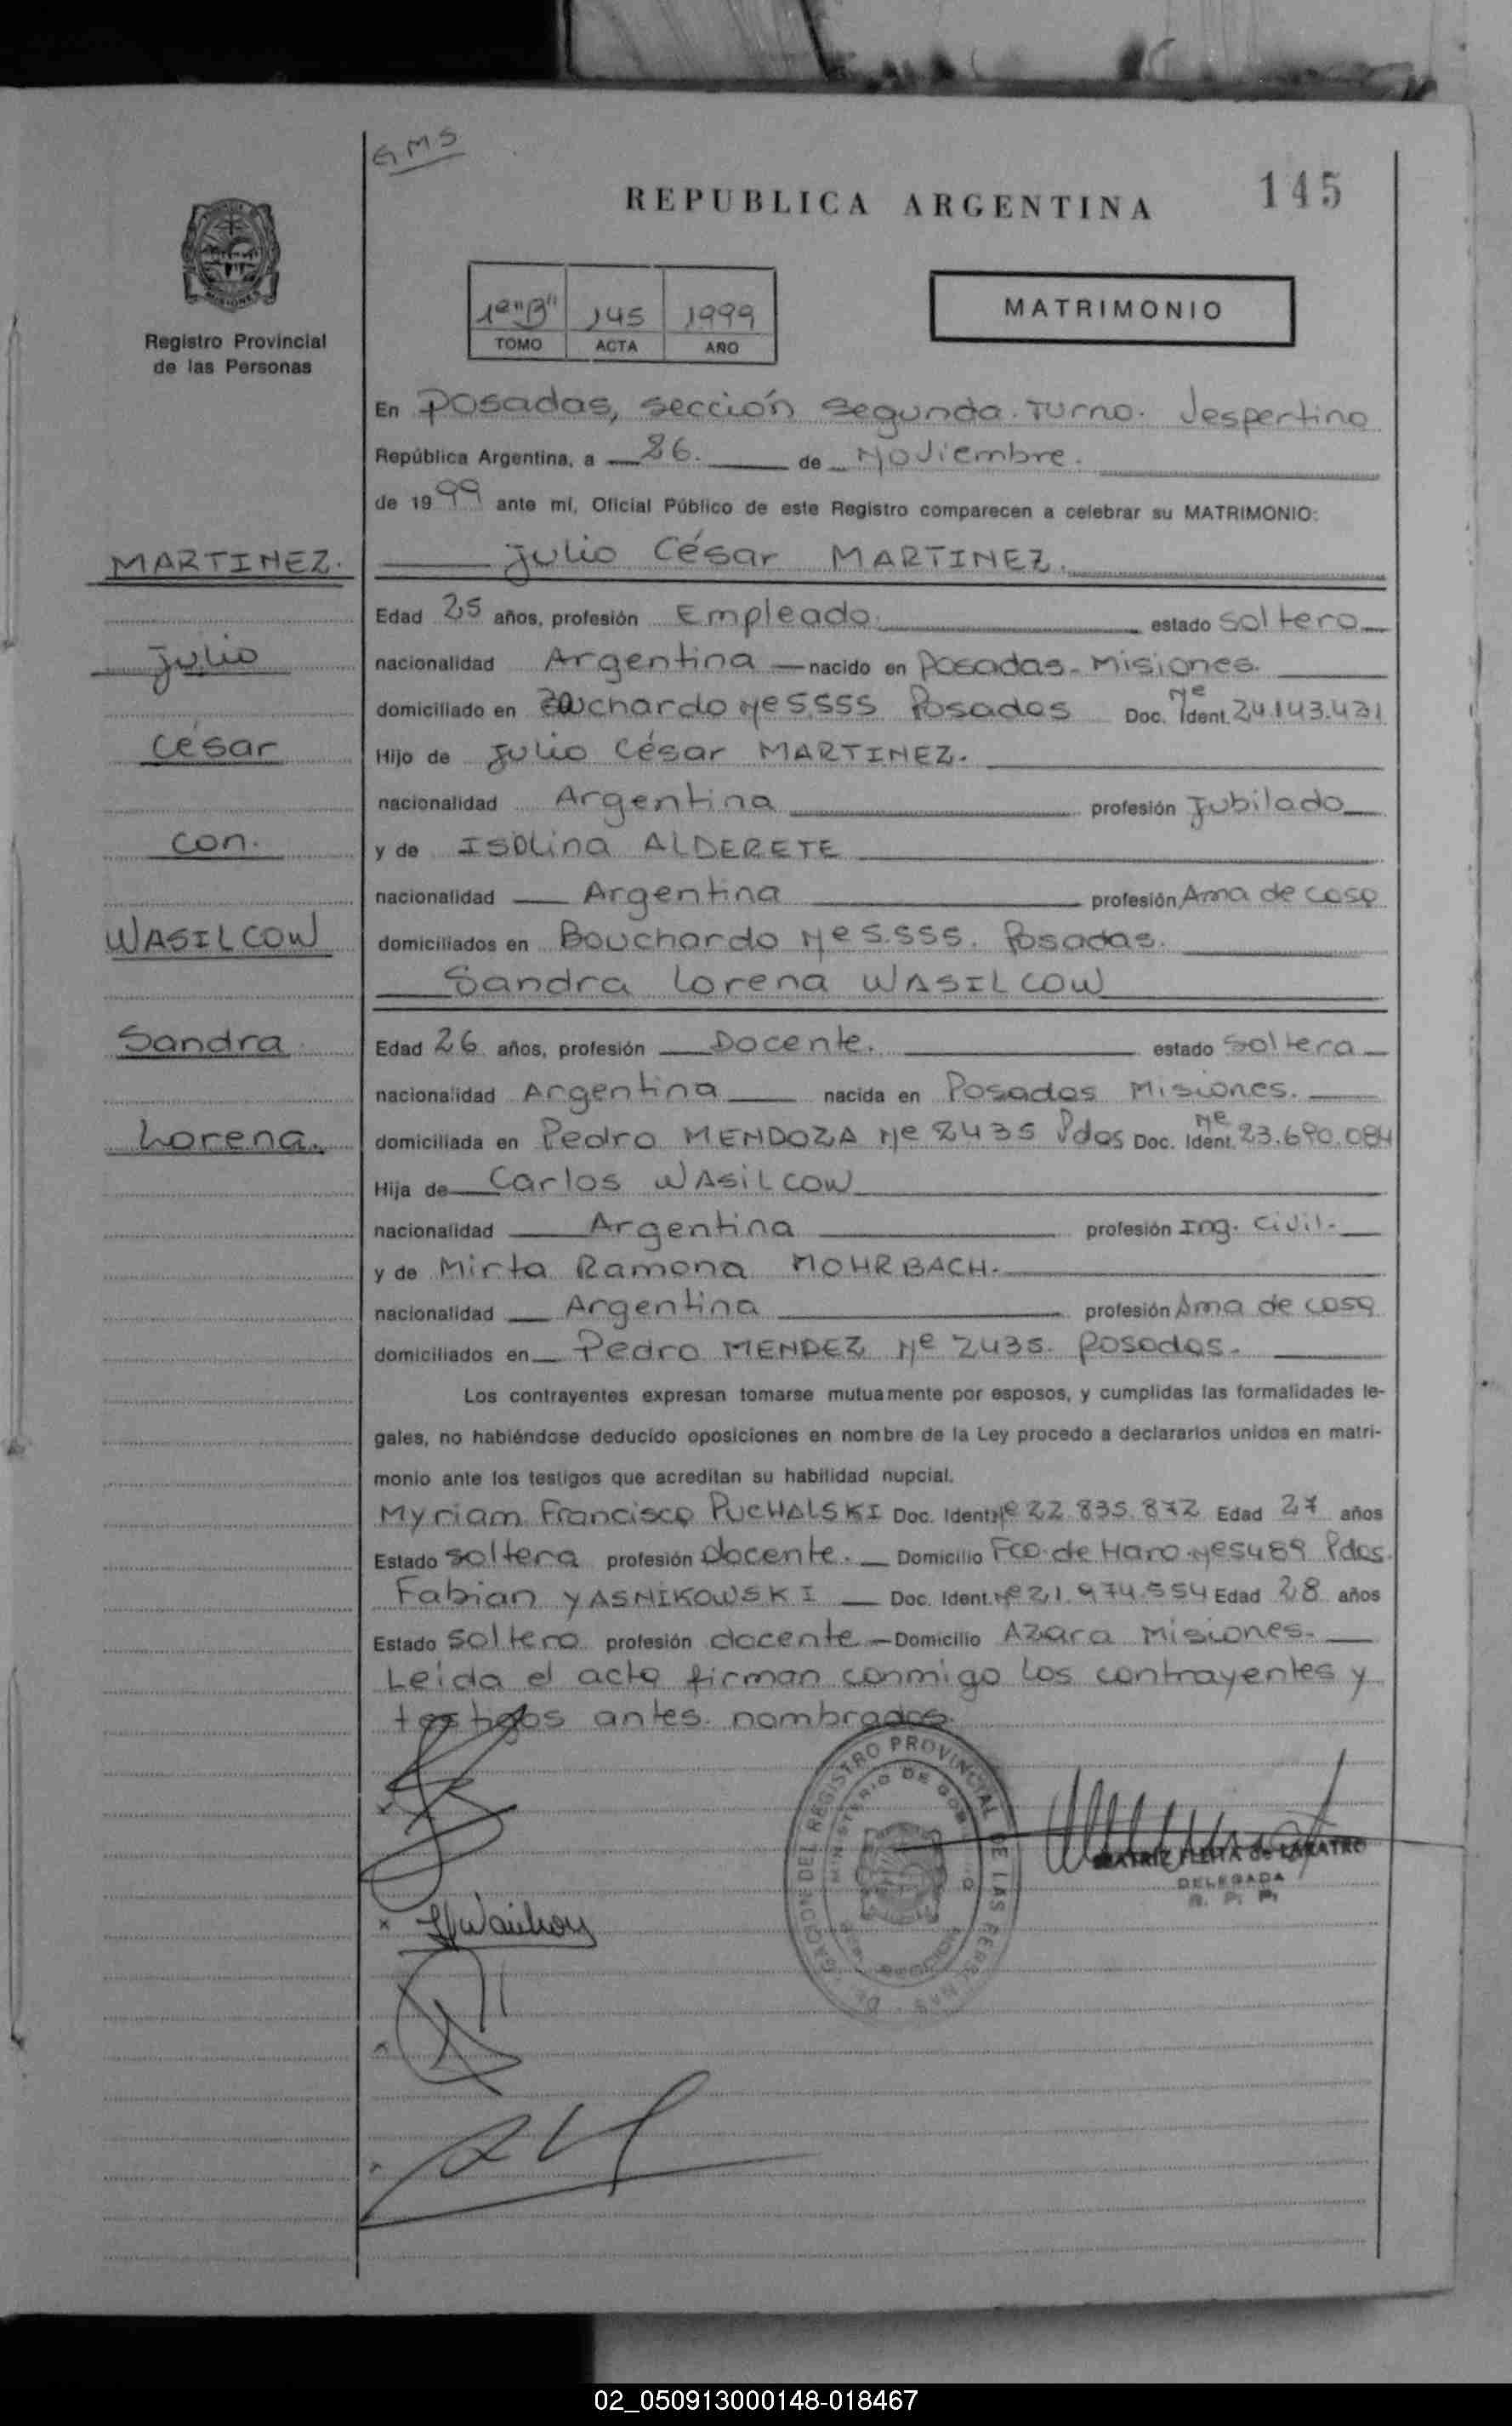 GMS
REPUBLICA ARGENTINA
145
Registro Provincial
de las Personas
1º "B" 145 1999
TOMO ACTA AÑO
MATRIMONIO
En Posadas, sección segunda. Turno. Vespertino
República Argentina, a 26. de Noviembre.
de 1999 ante mí, Oficial Público de este Registro comparecen a celebrar su MATRIMONIO:
MARTINEZ.
Julio César MARTINEZ.
Edad 25 años, profesión Empleado. estado soltero
Julio
nacionalidad Argentina nacido en Posadas - Misiones.
domiciliado en Bouchardo Nº 5.555 Posadas Doc. Ident. Nº 24.143.431
César
Hijo de Julio César MARTINEZ.
nacionalidad Argentina profesión Jubilado
con.
y de Isolina ALDERETE
nacionalidad Argentina profesión Ama de casa
WASILCOW
domiciliados en Bouchardo Nº 5.555. Posadas.
Sandra Lorena WASILCOW
Sandra
Edad 26 años, profesión Docente. estado soltera
nacionalidad Argentina nacida en Posadas Misiones.
Lorena.
domiciliada en Pedro MENDOZA Nº 2435 Pdas Doc. Ident. Nº 23.690.084
Hija de Carlos WASILCOW
nacionalidad Argentina profesión Ing. Civil.
y de Mirta Ramona MOHRBACH.
nacionalidad Argentina profesión Ama de casa
domiciliados en Pedro MENDEZ Nº 2435. Posadas.
Los contrayentes expresan tomarse mutuamente por esposos, y cumplidas las formalidades le-
gales, no habiéndose deducido oposiciones en nombre de la Ley procedo a declararlos unidos en matri-
monio ante los testigos que acreditan su habilidad nupcial.
Myriam Francisca PUCHALSKI Doc. Ident. Nº 22.835.872 Edad 27 años
Estado soltera profesión docente. Domicilio Fco. de Haro Nº 5489 Pdas.
Fabian YASNIKOWSKI Doc. Ident. Nº 21.974.554 Edad 28 años
Estado soltero profesión docente Domicilio Azara Misiones.
Leida el acta firman conmigo los contrayentes y
testigos antes nombrados.
DELEGACION DEL REGISTRO PROVINCIAL DE LAS PERSONAS
MINISTERIO DE GOB
MISIONES
DELEGADA
R. P. P.
02_050913000148-018467